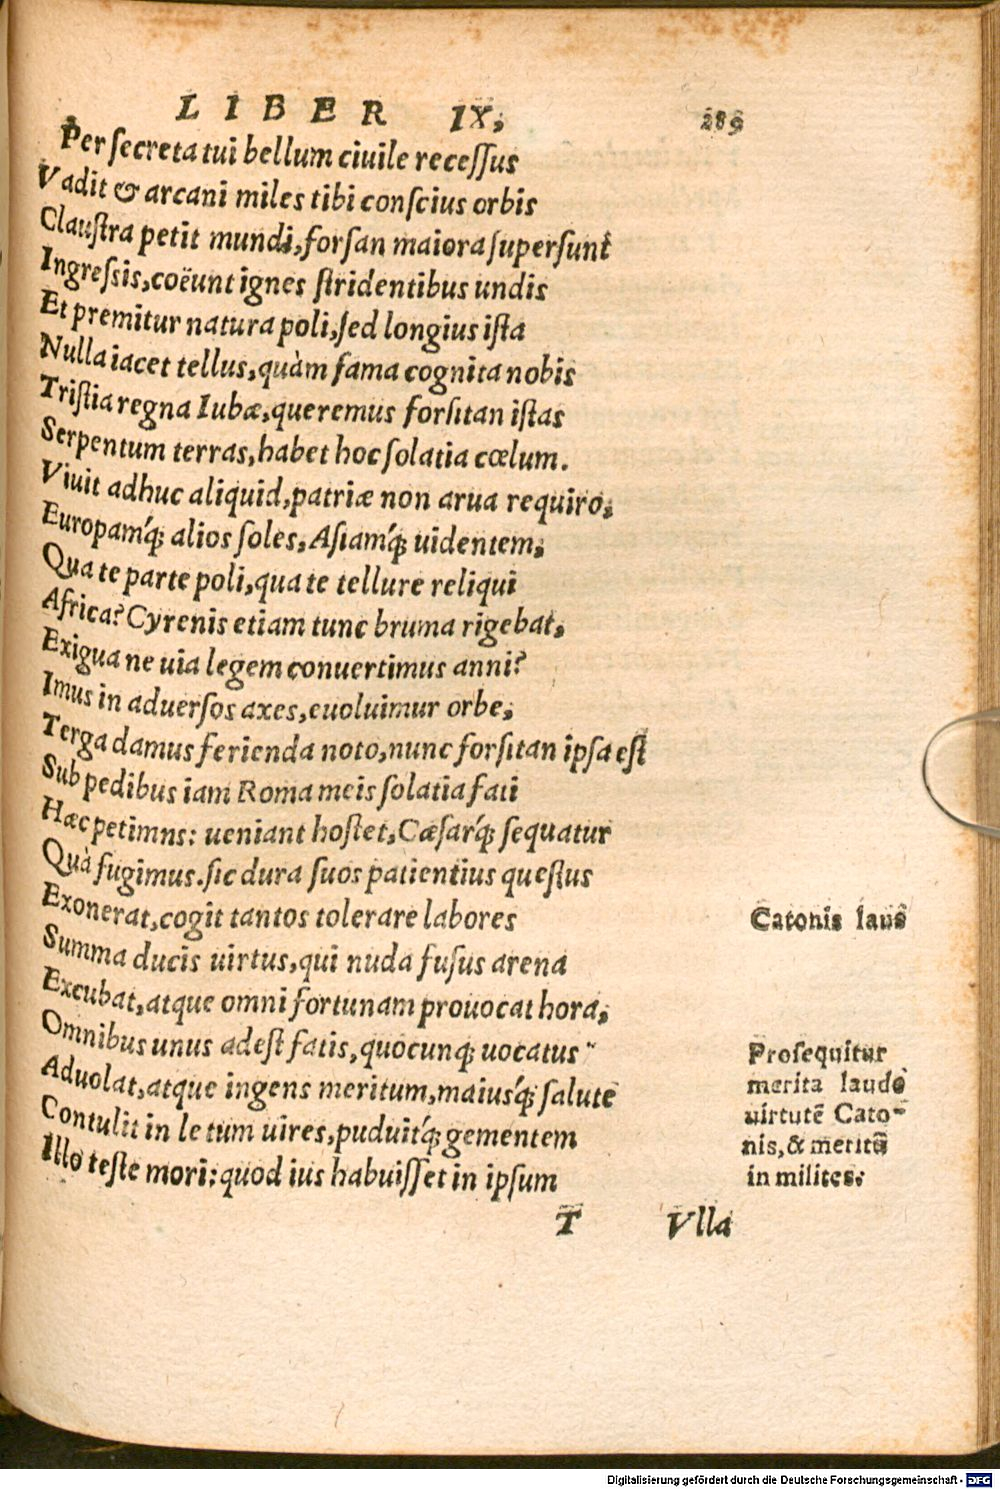 LIBER IX, 289
Per ſecreta tui bellum ciuile receſſus
Vadit & arcani miles tibi conſcius orbis
Clauſtra petit mundi, forſan maiora ſuperſunt
Ingreſsis, coëunt ignes ſtridentibus undis
Et premitur natura poli, ſed longius iſta
Nulla iacet tellus, quàm fama cognita nobis
Triſtia regna Iubæ, queremus forſitan iſtas
Serpentum terras, habet hoc ſolatia cœlum.
Viuit adhuc aliquid, patriæ non arua requiro,
Europamq́; alios ſoles, Aſiamq́; uidentem,
Qua te parte poli, qua te tellure reliqui
Africa? Cyrenis etiam tunc bruma rigebat,
Exigua ne uia legem conuertimus anni?
Imus in aduerſos axes, euoluimur orbe,
Terga damus ferienda noto, nunc forſitan ipſa eſt
Sub pedibus iam Roma meis ſolatia fati
Hæc petimns: ueniant hoſtet, Cæſarq́; ſequatur
Quà fugimus. ſic dura ſuos patientius queſtus
Exonerat, cogit tantos tolerare labores
Catonis laus
Summa ducis uirtus, qui nuda fuſus arena
Excubat, atque omni fortunam prouocat hora,
Omnibus unus adeſt fatis, quocunq; uocatus
Aduolat, atque ingens meritum, maiusq́; ſalute
Contulit in le tum uires, puduitq́; gementem
Illo teſte mori: quod ius habuiſſet in ipſum
Proſequitur
merita laude
uirtutē Cato-
nis, & meritū
in milites:
T Vlla
Digitalisierung gefördert durch die Deutsche Forschungsgemeinschaft - DFG